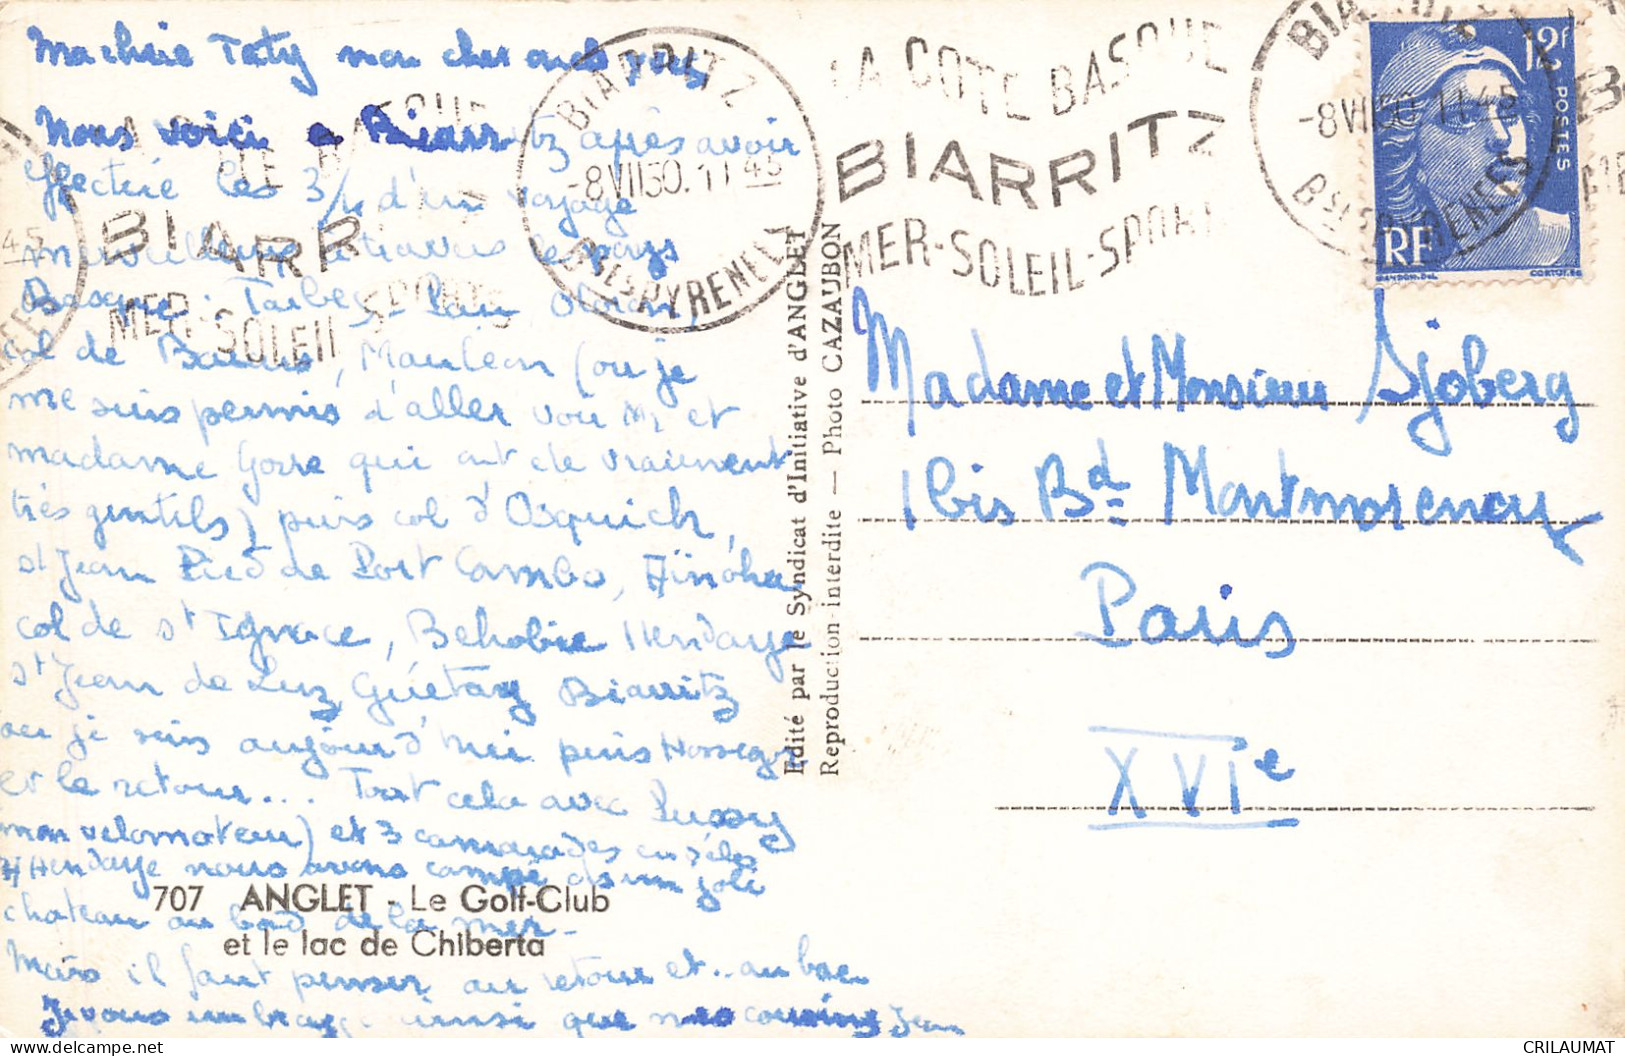 Ma chérie Taty mon cher oncle
Nous voici a Biarritz après avoir
effectué les 3/4 d'un voyage
merveilleux à travers le pays
Basque : Tarbes Pau Oloron,
col de Mauléon (ou je
me suis permis d'aller voir Mr et
madame Gorre qui ont été vraiement
très gentils) puis col d'Osquich,
St Jean Pied de Port Cambo, Aïnoha
col de St Ignace, Behobie Hendaye
St Jean de Luz Guétary Biarritz
ou je suis aujourd'hui puis Hossegor
et le retour... Tout cela avec Pussy
(mon velomoteur) et 3 camarades
A Hendaye nous avons campé ds un joli
chateau au bord de la mer-
Mais il faut penser au retour et.. au bac
Je vous embrasse ainsi que mes cousins Jean
707 ANGLET - Le Golf-Club
et le lac de Chiberta
Edité par le Syndicat d'Initiative d'ANGLET
Reproduction interdite — Photo CAZAUBON
BIARRITZ
-8 VII 50. 11 45
Bses PYRENEES
LA COTE BASQUE
BIARRITZ
MER-SOLEIL-SPORTS
BIARRITZ
-8 VII 50 11 45
Bses PYRENEES
12F
POSTES
RF
GANDON. DEL
CORTOT. SC
BIARR
MER-SOLEIL SPORTS
Madame et Monsieur Sjoberg
1 bis Bd Montmorency
Paris
XVIe
CRILAUMAT